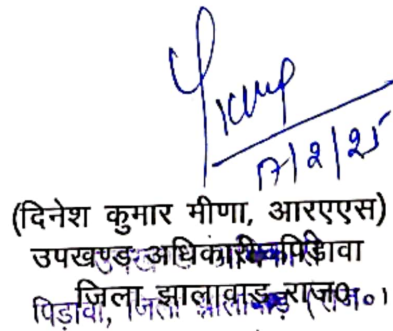 17/2/25
(दिनेश कुमार मीणा, आरएएस)
उपखण्ड अधिकारी पिड़ावा
जिला झालावाड़ राज०
पिड़ावा, जिला झालावाड़ (राज०)